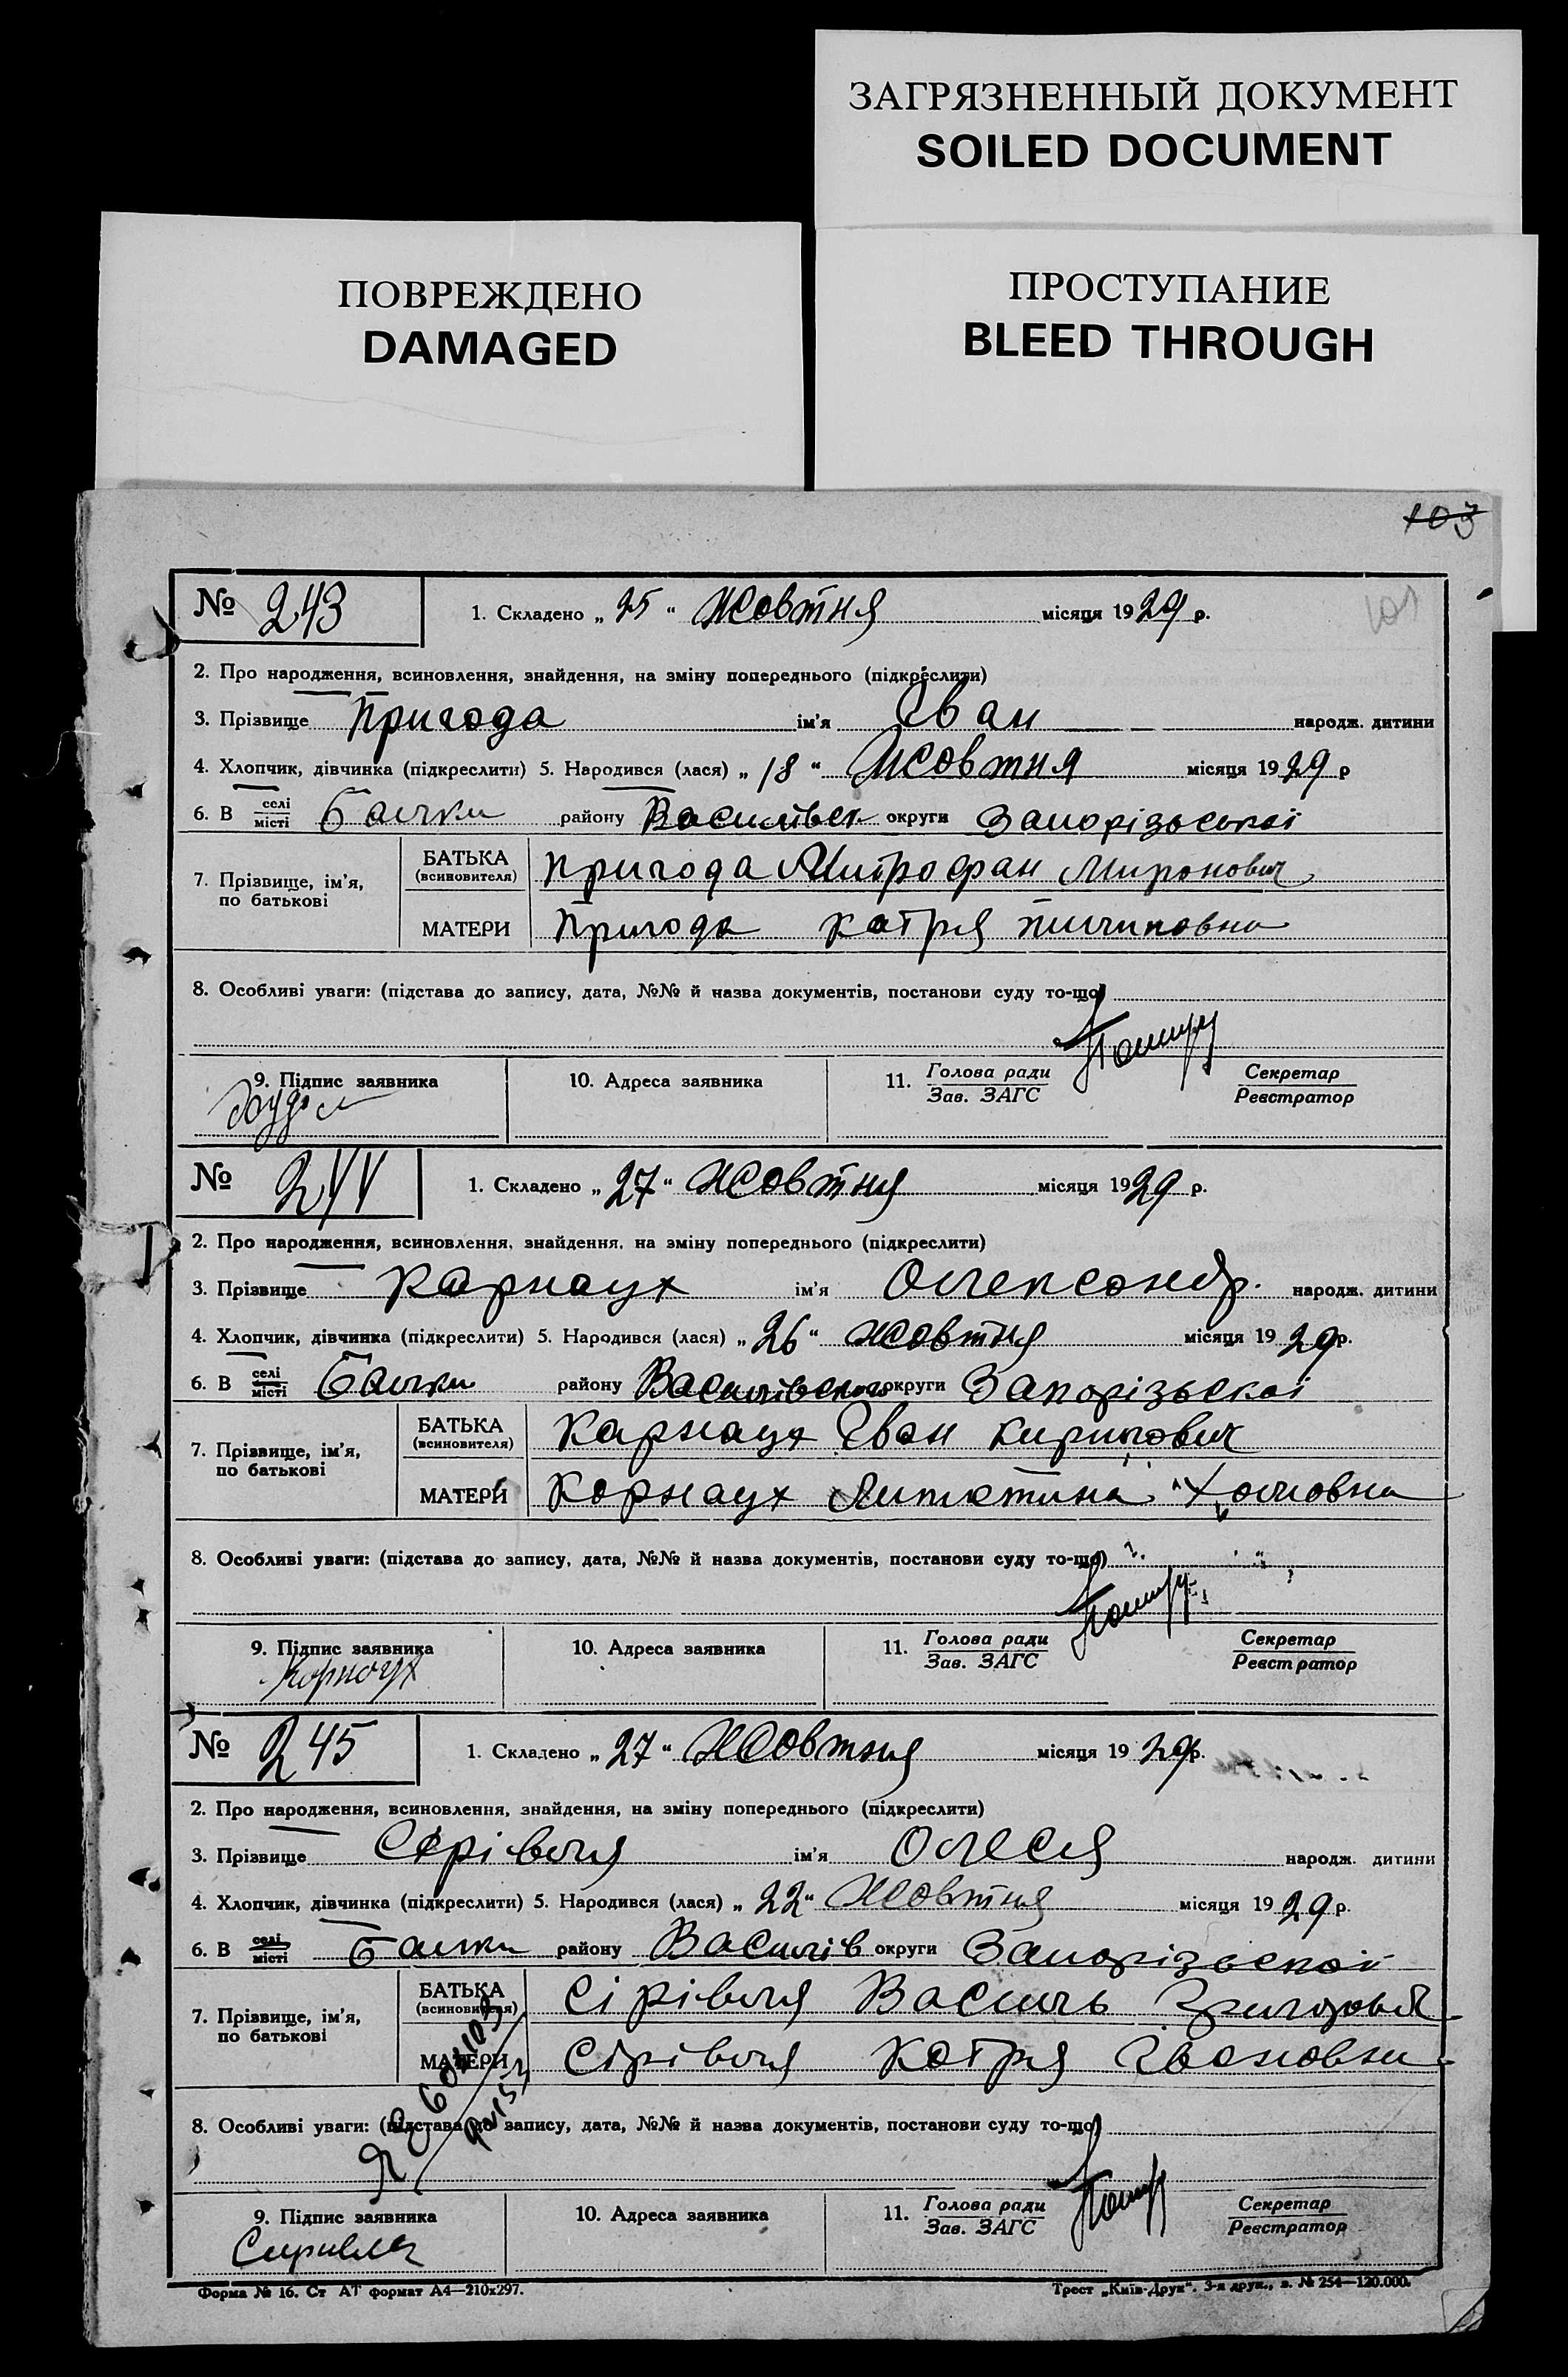 ЗАГРЯЗНЕННЫЙ ДОКУМЕНТ
SOILED DOCUMENT
ПОВРЕЖДЕНО
DAMAGED
ПРОСТУПАНИЕ
BLEED THROUGH
103
№ 243 1. Складено „ 25 “ Жовтня місяця 1929 р.
2. Про народження, всиновлення, знайдення, на зміну попереднього (підкреслити)
3. Прізвище Пригода ім'я Іван народж. дитини
4. Хлопчик, дівчинка (підкреслити) 5. Народився (лася) „ 18 “ Жовтня місяця 1929 р
6. В селі/місті Балки району Василівськ округи Запорізської
7. Прізвище, ім'я, по батькові
БАТЬКА (всиновителя) Пригода Митрофан Миронович
МАТЕРИ Пригода Катря Пилиповна
8. Особливі уваги: (підстава до запису, дата, №№ й назва документів, постанови суду то-що)
9. Підпис заявника 10. Адреса заявника 11. Голова ради/Зав. ЗАГС Секретар/Реєстратор
№ 244 1. Складено „ 27 “ Жовтня місяця 1929 р.
2. Про народження, всиновлення, знайдення, на зміну попереднього (підкреслити)
3. Прізвище Карнаух ім'я Олександр. народж. дитини
4. Хлопчик, дівчинка (підкреслити) 5. Народився (лася) „ 26 “ жовтня місяця 1929 р.
6. В селі/місті Балки району Василівськог округи Запорізької
7. Прізвище, ім'я, по батькові
БАТЬКА (всиновителя) Карнаух Іван Кирилович
МАТЕРИ Карнаух
8. Особливі уваги: (підстава до запису, дата, №№ й назва документів, постанови суду то-що)
9. Підпис заявника 10. Адреса заявника 11. Голова ради/Зав. ЗАГС Секретар/Реєстратор
Карнаух
№ 245 1. Складено „ 27 “ Жовтня місяця 1929 р.
2. Про народження, всиновлення, знайдення, на зміну попереднього (підкреслити)
3. Прізвище Сірівля ім'я Олеся народж. дитини
4. Хлопчик, дівчинка (підкреслити) 5. Народився (лася) „ 22 “ Жовтня місяця 1929 р.
6. В селі/місті Балки району Василів округи Запорізської
7. Прізвище, ім'я, по батькові
БАТЬКА (всиновителя) Сірівля Василь Григорович
МАТЕРИ Сірівля Катря Івановна
8. Особливі уваги: (підстава до запису, дата, №№ й назва документів, постанови суду то-що)
9. Підпис заявника 10. Адреса заявника 11. Голова ради/Зав. ЗАГС Секретар/Реєстратор
Форма № 16. Ст АТ формат А4—210x297. Трест „Київ-Друк“. 3-я друк., з. № 254—120.000.